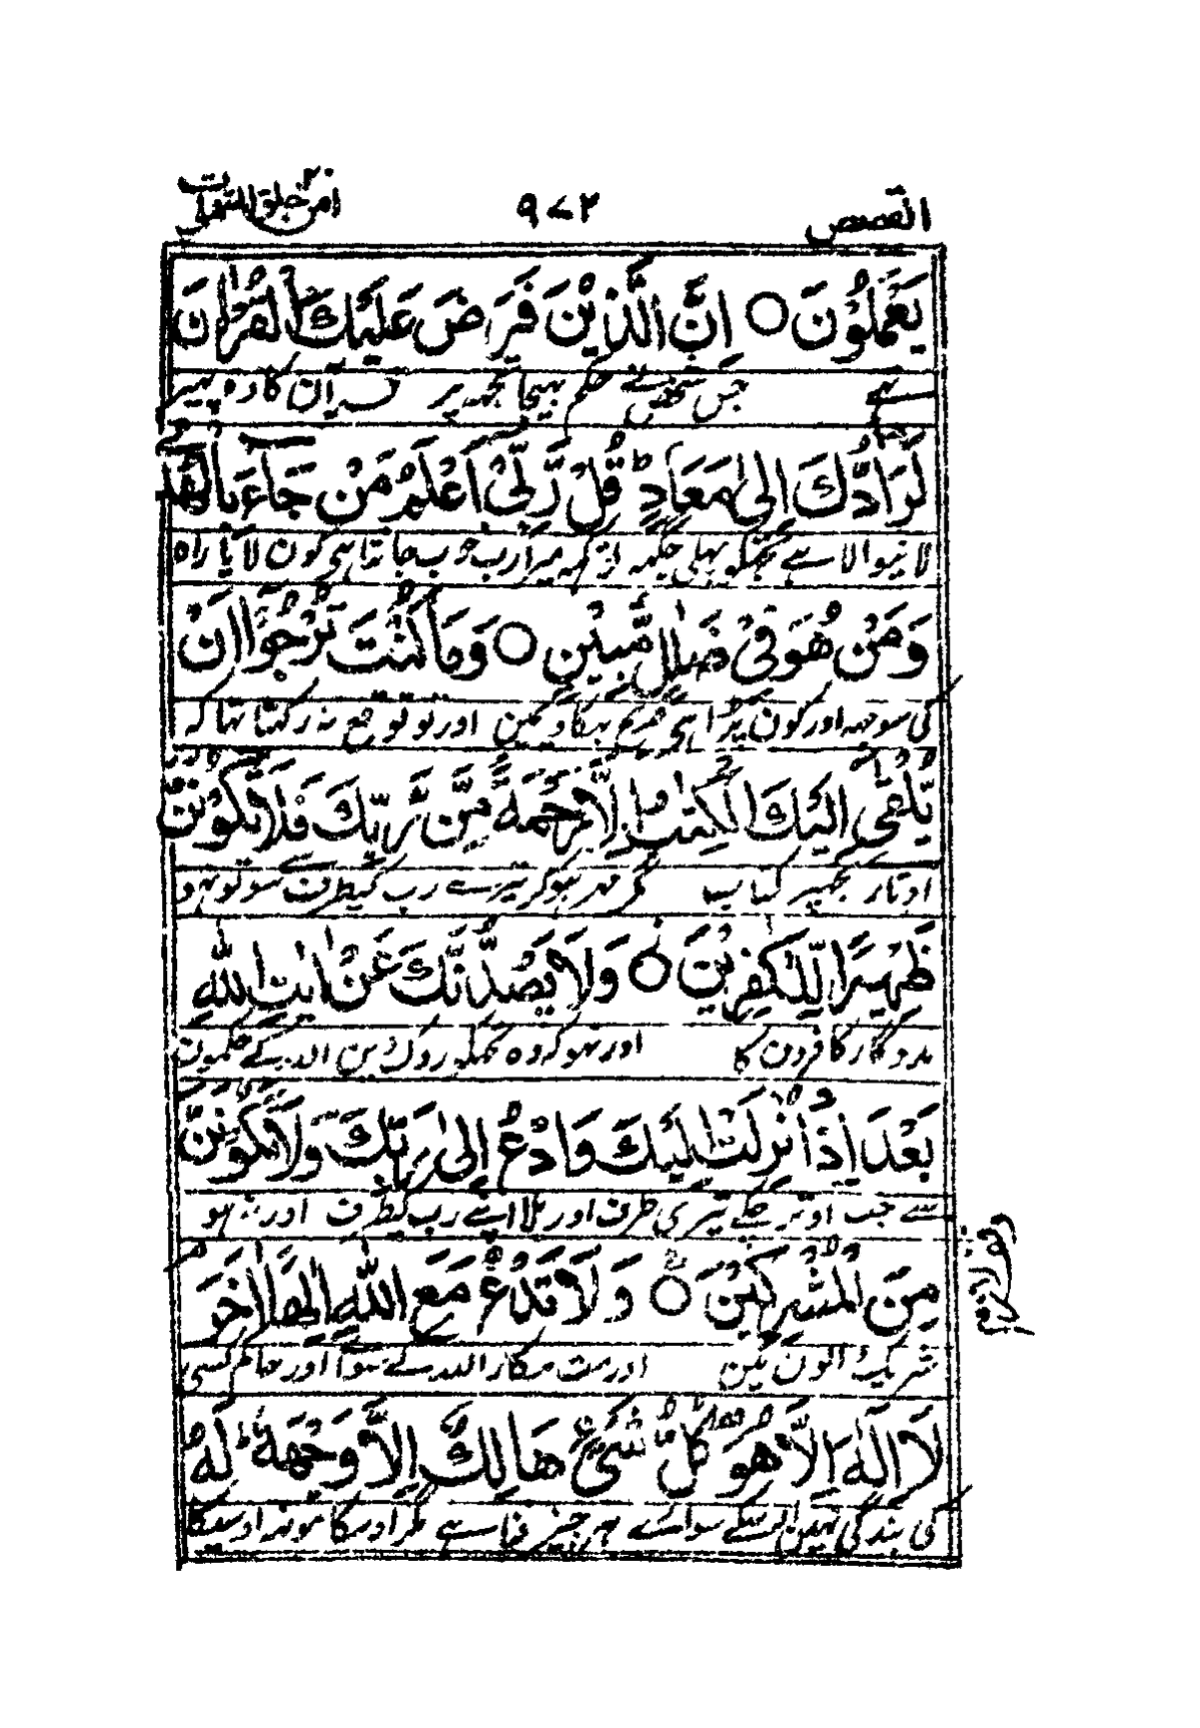 القصص ٩٧٢ امن خلق السموت ٢٠
يَعْمَلُوْنَ ○ اِنَّ الَّذِيْنَ فَرَضَ عَلَيْكَ الْقُرْاٰنَ
سے جس شخص نے حکم بھیجا تجھہ پر قرآن کا وہ پھیر
لَرَادُّكَ اِلٰى مَعَادٍ ط قُلْ رَّبِّيْ اَعْلَمُ مَنْ جَآءَ بِالْهُدٰى
لانیوالا ہے تجھکو پہلی جگہہ تو کہہ میرا رب خوب جانتا ہی کون لایا راہ
وَمَنْ هُوَ فِيْ ضَلٰلٍ مُّبِيْنٍ ○ وَمَا كُنْتَ تَرْجُوْٓا اَنْ
کی سوجہہ اور کون پڑا ہی صریح بہکاوی مین اور تو توقع نہ رکہتا تہا کہ
يُّلْقٰٓى اِلَيْكَ الْكِتٰبُ اِلَّا رَحْمَةً مِّنْ رَّبِّكَ فَلَا تَكُوْنَنَّ
اوتار تجھپر کتاب مگر مہر ہوکر تیرے رب کیطرف سے سو تو نہو
ظَهِيْرًا لِّلْكٰفِرِيْنَ ○ وَلَا يَصُدُّنَّكَ عَنْ اٰيٰتِ اللّٰهِ
مددگار کافرون کا اور نہو کہ وہ تجھکو روک دین اللہ کے حکمون
بَعْدَ اِذْ اُنْزِلَتْ اِلَيْكَ وَادْعُ اِلٰى رَبِّكَ وَلَا تَكُوْنَنَّ
سے جب اوتر چکے تیری طرف اور بلا اپنے رب کیطرف اور نہ ہو
مِنَ الْمُشْرِكِيْنَ ○ وَلَا تَدْعُ مَعَ اللّٰهِ اِلٰهًا اٰخَرَ
شریک والون مین اور مت پکار اللہ کے سوا اور حاکم کسی
لَآ اِلٰهَ اِلَّا هُوَ كُلُّ شَيْءٍ هَالِكٌ اِلَّا وَجْهَهٗ ط لَهُ
کی بندگی نہین اوسکے سوائے ہر چیز فنا ہے مگر اوسکا مونہہ اوسیکا